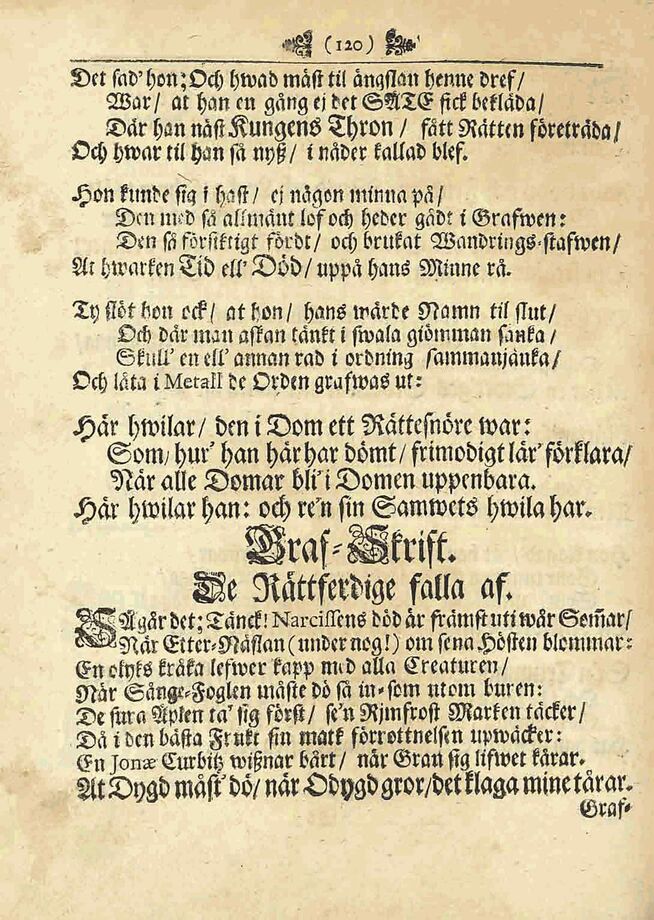 (120)
Det sad' hon; Och hwad mäst til ängslan henne dref/
War/ at han en gång ej det SÄTE fick bekläda/
Där han näst Kungens Thron/ fått Rätten företräda/
Och hwar til han så nyß/ i nåder kallad blef.
Hon kunde sig i hast/ ej någon minna på/
Den med så allmänt lof och heder gådt i Grafwen:
Den så försiktigt fördt/ och brukat Wandrings-stafwen/
At hwarken Tid ell' Död/ uppå hans Minne rå.
Ty slöt hon ock/ at hon/ hans wärde Namn til slut/
Och där man askan tänkt i swala gjömman sänka/
Skull' en ell' annan rad i ordning sammanjänka/
Och låta i Metall de Orden grafwas ut:
Här hwilar/ den i Dom ett Rättesnöre war:
Som/ hur' han här har dömt/ frimodigt lär' förklara/
När alle Domar bli' i Domen uppenbara.
Här hwilar han: och re'n sin Samwets hwila har.
Graf-Skrift.
De Rättferdige falla af.
SÅ går det; Tänck! Narcissens död är främst uti wår Som̄ar/
När Etter-Näslan (under nog!) om sena Hösten blommar:
En olyks kråka lefwer kapp med alla Creaturen/
När Sångs-Foglen måste dö så in-som utom buren:
De sura Äplen ta' sig först/ se'n Rjmfrost Marken täcker/
Då i den bästa Frukt sin matk förrottnelsen upwäcker:
En Jonæ Curbitz wißnar bårt/ när Gran sig lifwet kårar.
At Dygd måst' dö/ när Odygd gror/ det klaga mine tårar.
Graf-